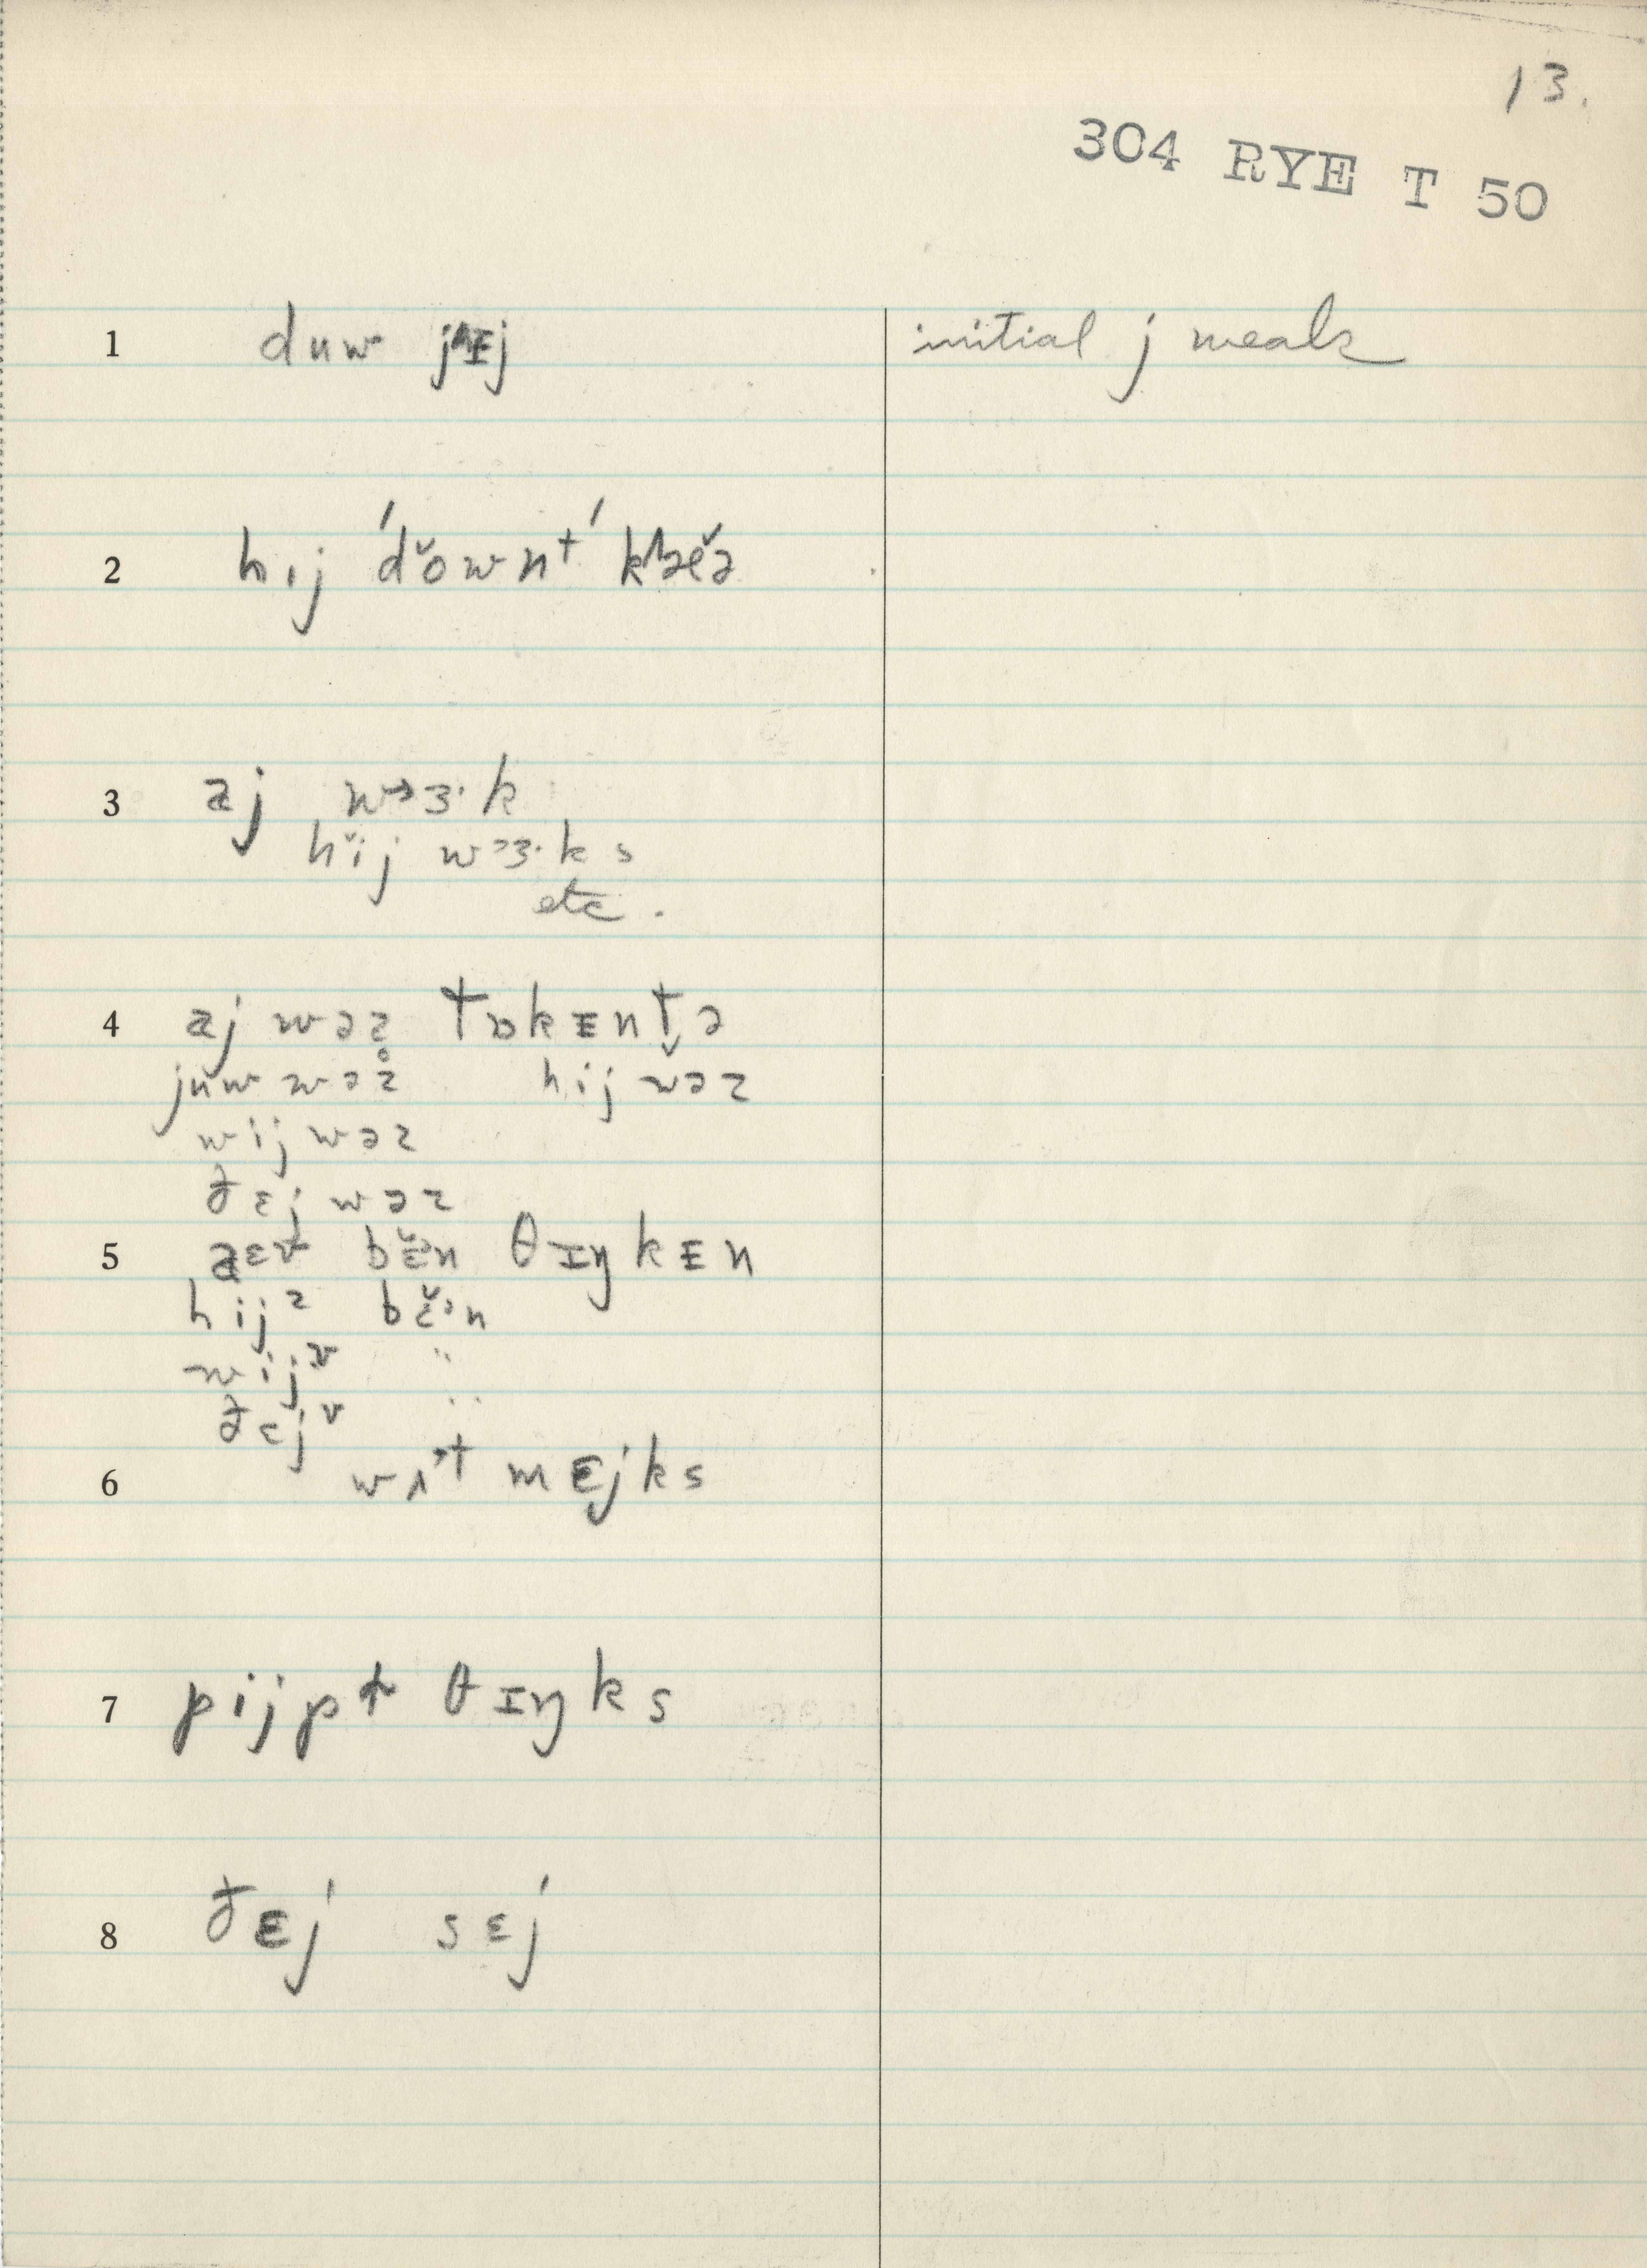 13.
304 RYE T 50
1 duw jᴇj initial j weak
2 hij 'dŏwnt'
3 aj wɜ·k
hĭj wᵊɜ·k s
etc.
4 aj wəz tɒkᴇntə
juw wəz̥ hij wəz
wij wəz
ðɛj wəz
5 aɛv bɛ̆ᵊn θɪŋkᴇn
hijᶻ bɛ̆ᵊn
wijᵛ "
ðɛjᵛ "
6 wʌ˒t mɛjks
7 pijpt θɪŋks
8 ðɛj sɛj